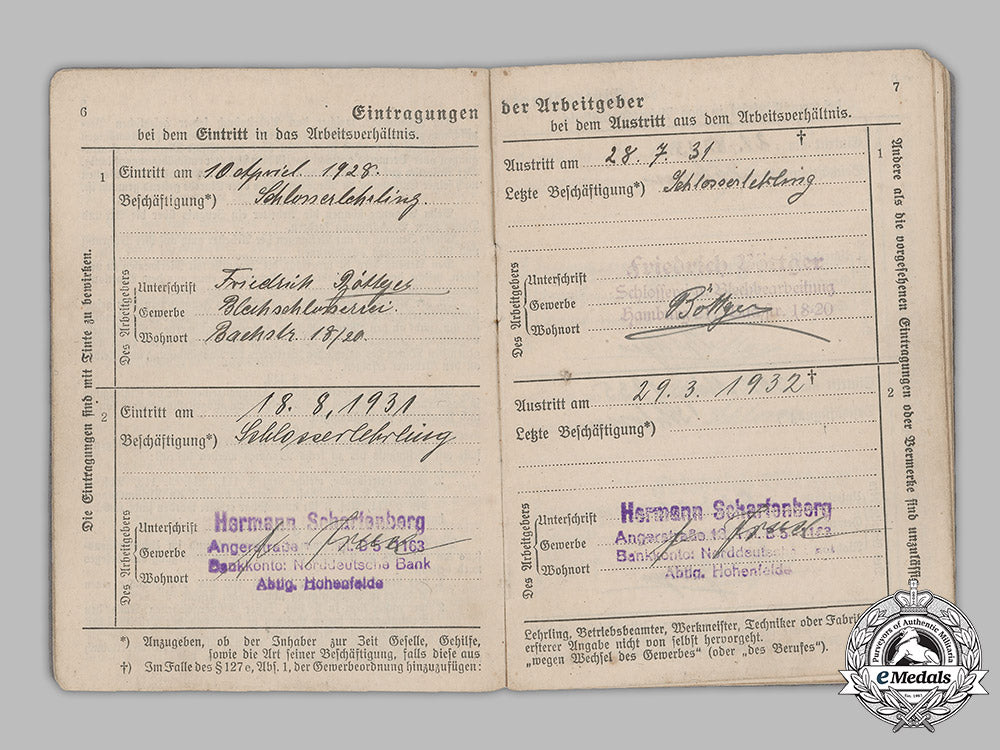 6
Eintragungen
bei dem Eintritt in das Arbeitsverhältnis.
Die Eintragungen sind mit Tinte zu bewirken.
1
Eintritt am 10 April 1928.
Beschäftigung*) Schlosserlehrling.
Des Arbeitgebers
Unterschrift Friedrich Böttger
Gewerbe Blechschlosserei.
Wohnort Bachstr. 18/20.
2
Eintritt am 18. 8. 1931
Beschäftigung*) Schlosserlehrling
Des Arbeitgebers
Unterschrift
Gewerbe
Wohnort
Hermann Scharfenberg
Angerstraße
Bankkonto: Norddeutsche Bank
Abtlg. Hohenfelde
*) Anzugeben, ob der Inhaber zur Zeit Geselle, Gehilfe,
sowie die Art seiner Beschäftigung, falls diese aus
†) Im Falle des § 127e, Abs. 1, der Gewerbeordnung hinzuzufügen:
7
der Arbeitgeber
bei dem Austritt aus dem Arbeitsverhältnis.
1
Austritt am 28. 7. 31 †
Letzte Beschäftigung*) Schlosserlehrling
Des Arbeitgebers
Unterschrift
Gewerbe
Wohnort
Friedrich Böttger
Blechbearbeitung
18/20
Böttger
2
Austritt am 29. 3. 1932 †
Letzte Beschäftigung*)
Des Arbeitgebers
Unterschrift
Gewerbe
Wohnort
Hermann Scharfenberg
Angerstraße
Bankkonto: Norddeutsche
Abtlg. Hohenfelde
Andere als die vorgesehenen Eintragungen oder Vermerke sind
Lehrling, Betriebsbeamter, Werkmeister, Techniker oder
ersterer Angabe nicht von selbst hervorgeht.
„wegen Wechsel des Gewerbes“ (oder „des Berufes“).
Purveyors of Authentic Militaria
eMedals